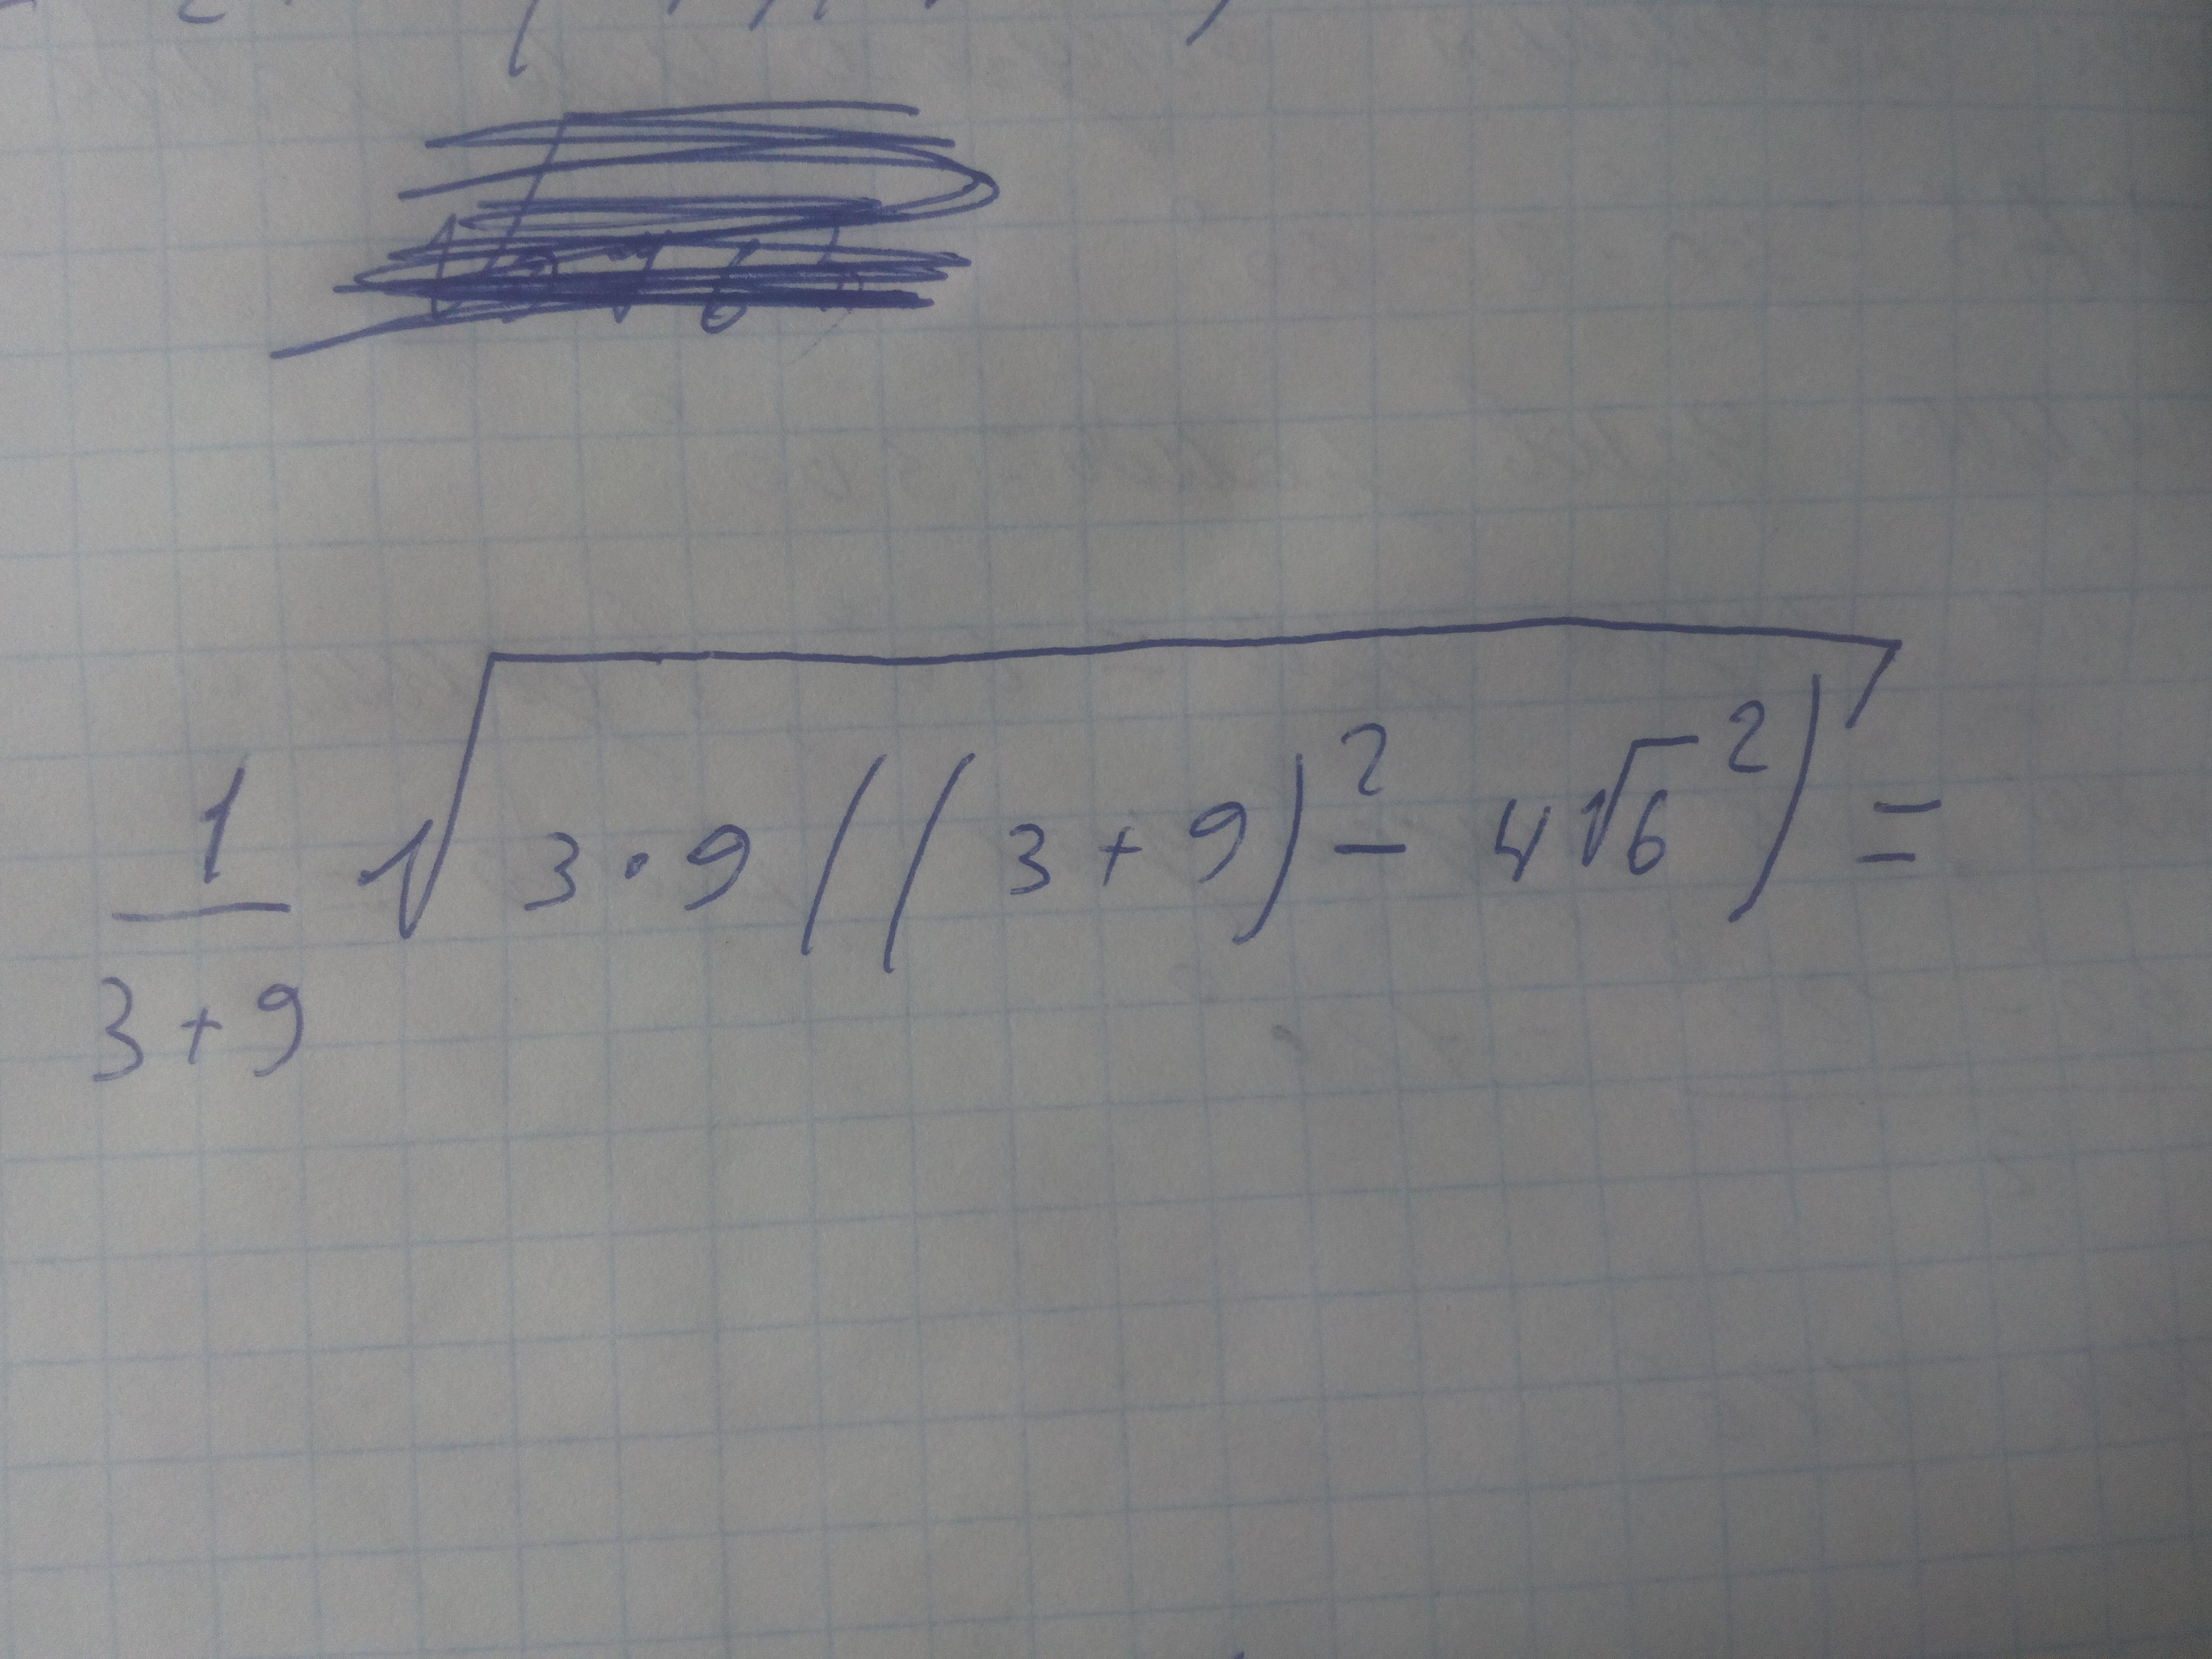 1/(3+9) √(3·9((3+9)² − 4√6²)) =